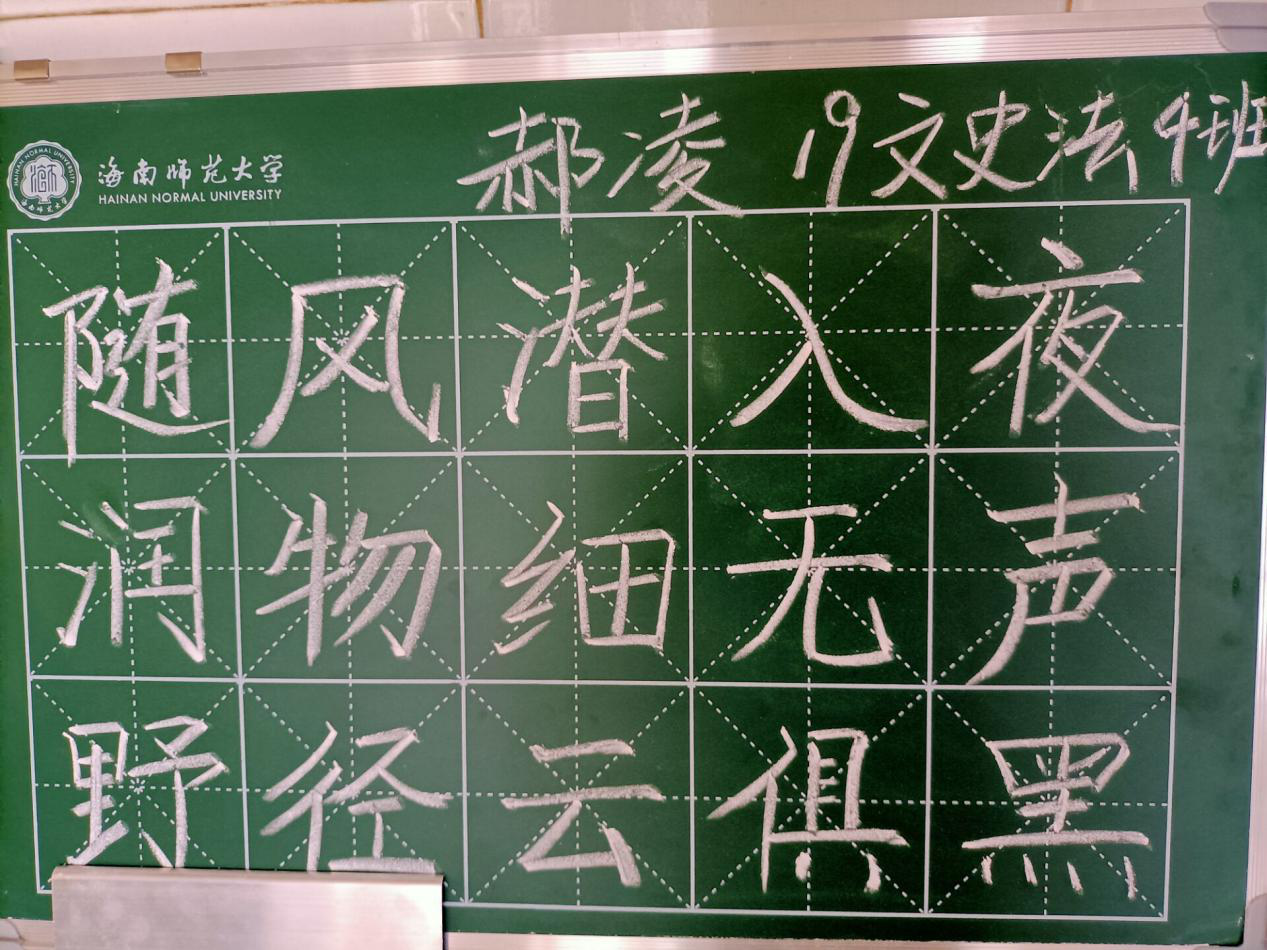 郝凌 19文史法4班
海南师范大学
HAINAN NORMAL UNIVERSITY
随风潜入夜
润物细无声
野径云俱黑